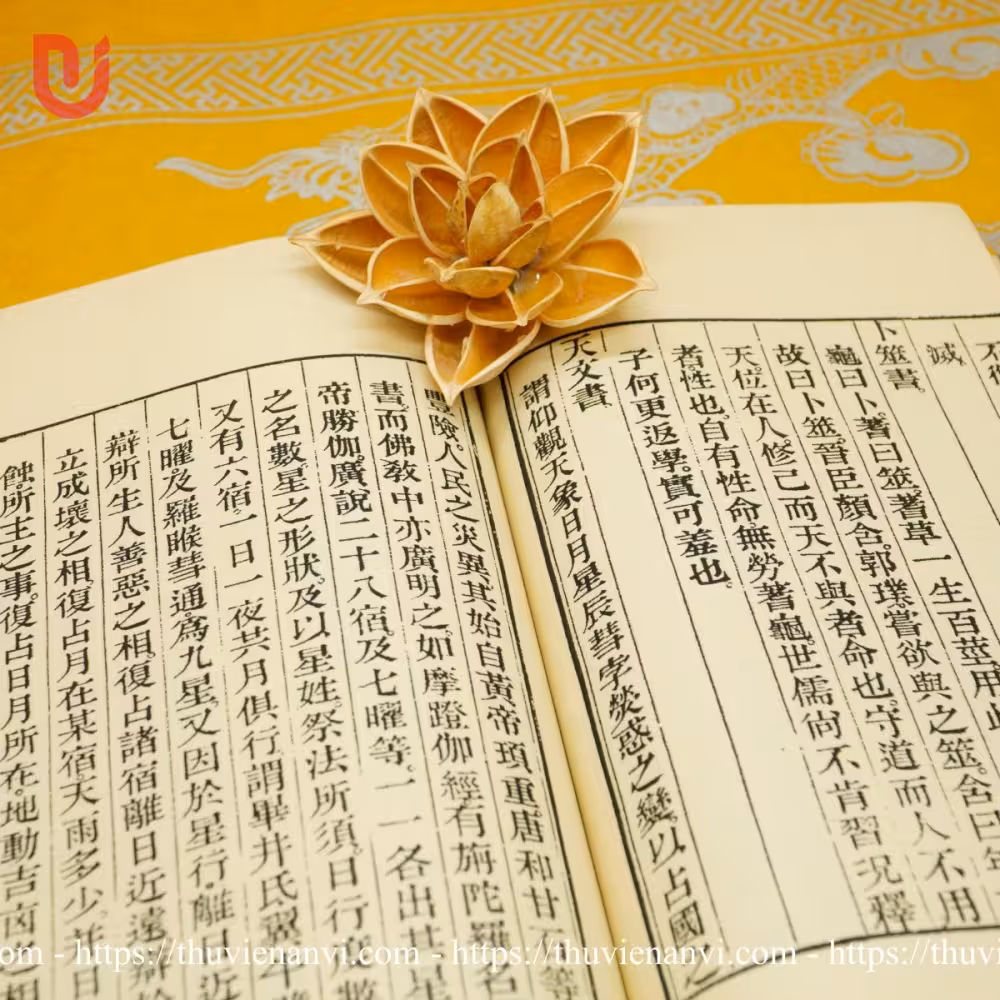 滅
卜筮書。
龜曰卜。蓍曰筮。蓍草一生百莖。用此
故曰卜筮。晉臣顏含。郭璞嘗欲與之筮。含曰年
天。位在人。修己而天不與者。命也。守道而人不用
者。性也。自有性命。無勞蓍龜。世儒尙不肯習。況釋
子何更返學。實可羞也。
天文書。
謂仰觀天象日月星辰彗孛熒惑之變。以占國之
豐險。人民之災異。其始自黃帝。頊重。唐和。甘石等
書。而佛敎中亦廣明之。如摩蹬伽經。有旃陀羅名
帝勝伽。廣說二十八宿。及七曜等。一一各出其星
之名數。星之形狀。及以星姓。祭法所須。日行
又有六宿。一日一夜共月俱行。謂畢井氐翼
七曜。及羅睺彗。通爲九星。又因於星行。離日近
辯所生人善惡之相。復占諸宿離日近遠。辯於
立成壞之相。復占月在某宿。天雨多少。並日
蝕。所主之事。復占日月所在。地動吉凶之相
om - https://thuvienanvi.com - https://thuvienanvi.com - https://thuvi